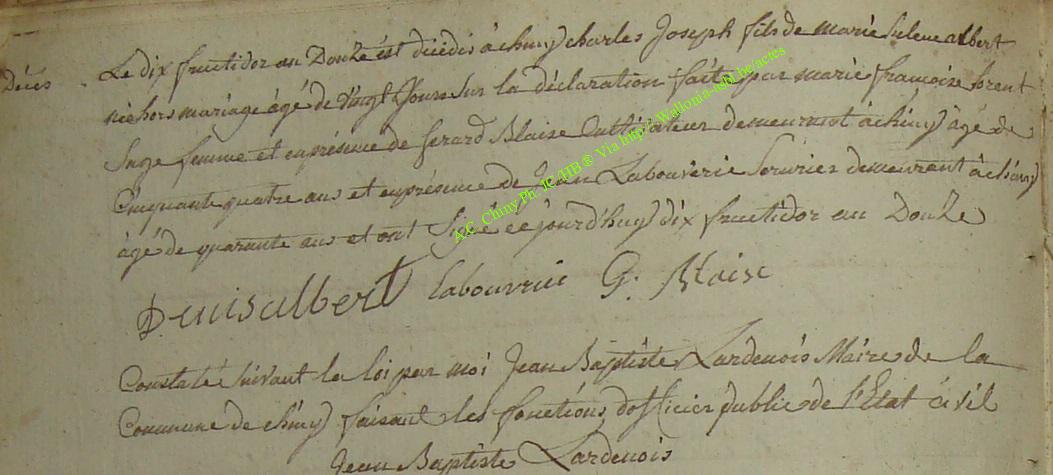 Décès
Le dix fructidor an Douze est décédé à chiny charles Joseph fils de marie helene albert
née hors mariage âgé de vingt Jours Sur la déclaration faite par marie françoise
Sage femme et en présence de Gerard Blaise Cultivateur demeurant à chiny âgé de
Cinquante quatre ans et en présence de Jean Labouverie Serurier demeurant à chiny
âgé de quarante ans et ont Signé ce jourd'huy dix fructidor an Douze
Denis albert labouverie G: Blaise
Constaté Suivant la loi par moi Jean Baptiste Lardenois Maire de la
Commune de chiny faisant les fonctions d'officier public de l'Etat civil
Jean Baptiste Lardenois
A.C. Chiny Ph. JC/HB ® Via http://Wallonia-asbl.be/actes